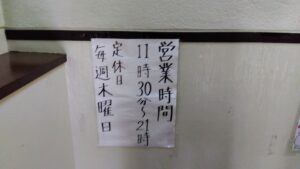 営業時間
11時30分〜21時
定休日
毎週木曜日